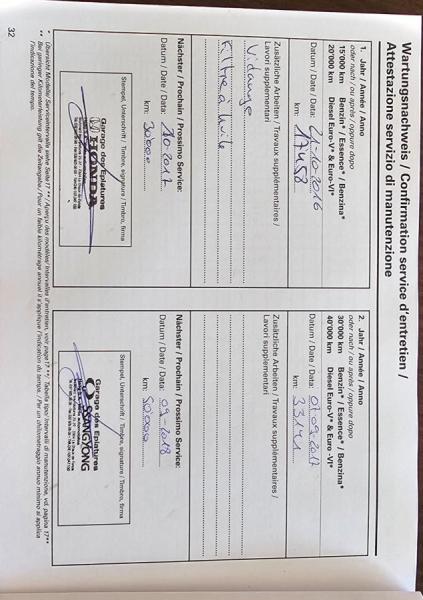 Wartungsnachweis / Confirmation service d'entretien /
Attestazione servizio di manutenzione
1. Jahr / Année / Anno
oder nach / ou après / oppure dopo
15'000 km Benzin* / Essence* / Benzina*
20'000 km Diesel Euro-V* & Euro-VI*
Datum / Date / Data: 21-10-2016
km: 17458
Zusätzliche Arbeiten / Travaux supplémentaires /
Lavori supplementari
Vidange
Filtre à huile
Nächster / Prochain / Prossimo Service:
Datum / Date / Data: 10-2017
km: 30000
Stempel, Unterschrift / Timbre, signature / Timbro, firma
Garage des Eplatures
HONDA
2. Jahr / Année / Anno
oder nach / ou après / oppure dopo
30'000 km Benzin* / Essence* / Benzina*
40'000 km Diesel Euro-V* & Euro-VI*
Datum / Date / Data: 01.09.2017
km: 33141
Zusätzliche Arbeiten / Travaux supplémentaires /
Lavori supplementari
Nächster / Prochain / Prossimo Service:
Datum / Date / Data: 09-2018
km: 50000
Stempel, Unterschrift / Timbre, signature / Timbro, firma
Garage des Eplatures
SSANGYONG
* Übersicht Modelle/Serviceintervalle siehe Seite 17** / Aperçu des modèles/ Intervalles d'entretien, voir page 17** / Tabella tipo/ Intervalli di manutenzione, vd. pagina 17**
** Bei geringer Kilometerleistung gilt die Zeitangabe. / Pour un faible kilométrage annuel il s'applique l'indication du temps. / Per un chilometraggio annuo minimo si applica
l'indicazione del tempo.
32